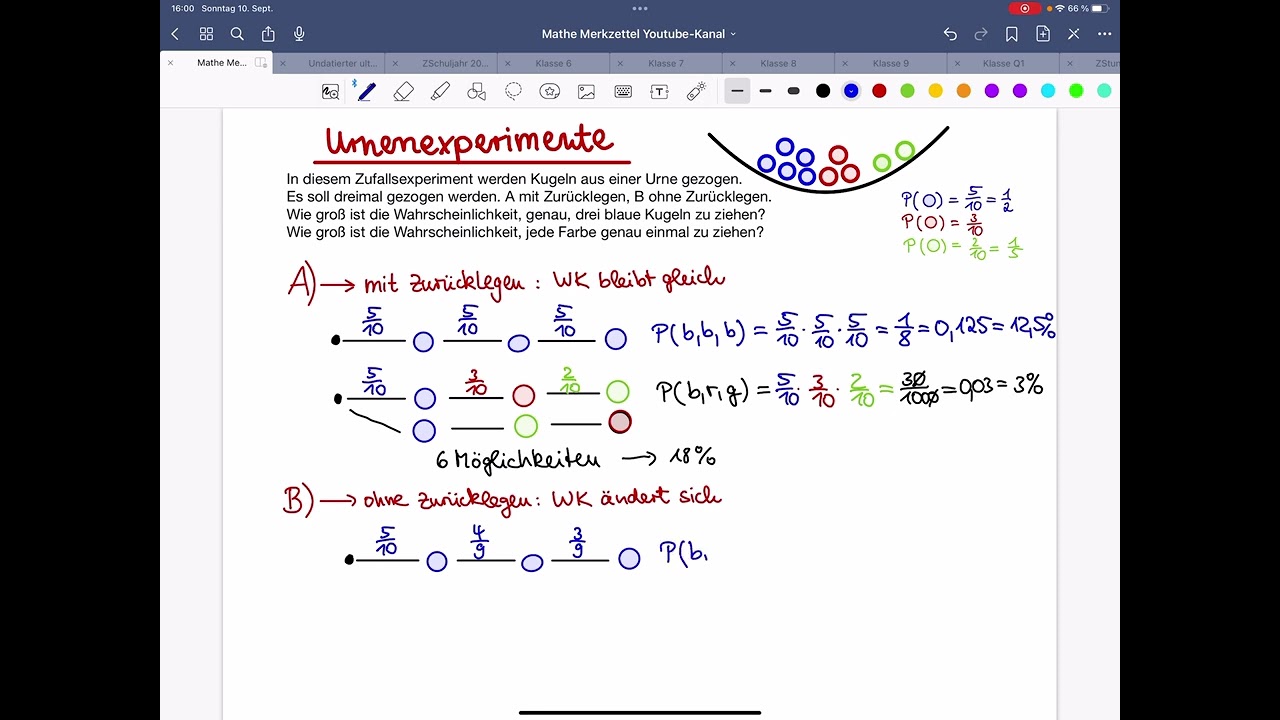 16:00 Sonntag 10. Sept.
66 %
Mathe Merkzettel Youtube-Kanal
Mathe Me...
Undatierter ult...
ZSchuljahr 20...
Klasse 6
Klasse 7
Klasse 8
Klasse 9
Klasse Q1
ZStun
Urnenexperimente
In diesem Zufallsexperiment werden Kugeln aus einer Urne gezogen.
Es soll dreimal gezogen werden. A mit Zurücklegen, B ohne Zurücklegen.
Wie groß ist die Wahrscheinlichkeit, genau, drei blaue Kugeln zu ziehen?
Wie groß ist die Wahrscheinlichkeit, jede Farbe genau einmal zu ziehen?
P(O) = 5/10 = 1/2
P(O) = 3/10
P(O) = 2/10 = 1/5
A) → mit Zurücklegen : WK bleibt gleich
5/10 5/10 5/10 P(b,b,b) = 5/10 · 5/10 · 5/10 = 1/8 = 0,125 = 12,5%
5/10 3/10 2/10 P(b,r,g) = 5/10 · 3/10 · 2/10 = 30/1000 = 0,03 = 3%
6 Möglichkeiten → 18%
B) → ohne Zurücklegen: WK ändert sich
5/10 4/9 3/9 P(b,